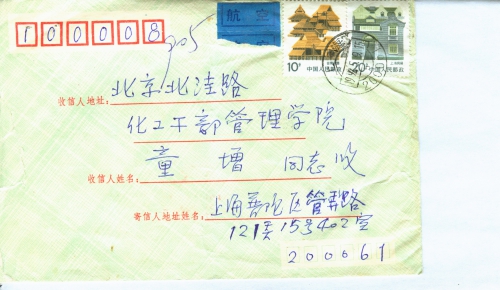 100008
905
航空
10分
中国人民邮政
20分
中国人民邮政
北京北洼路
收信人地址:
化工干部管理学院
童增 同志收
收信人姓名:
上海普陀区管弄路
寄信人地址姓名:
121弄15号402室
200061